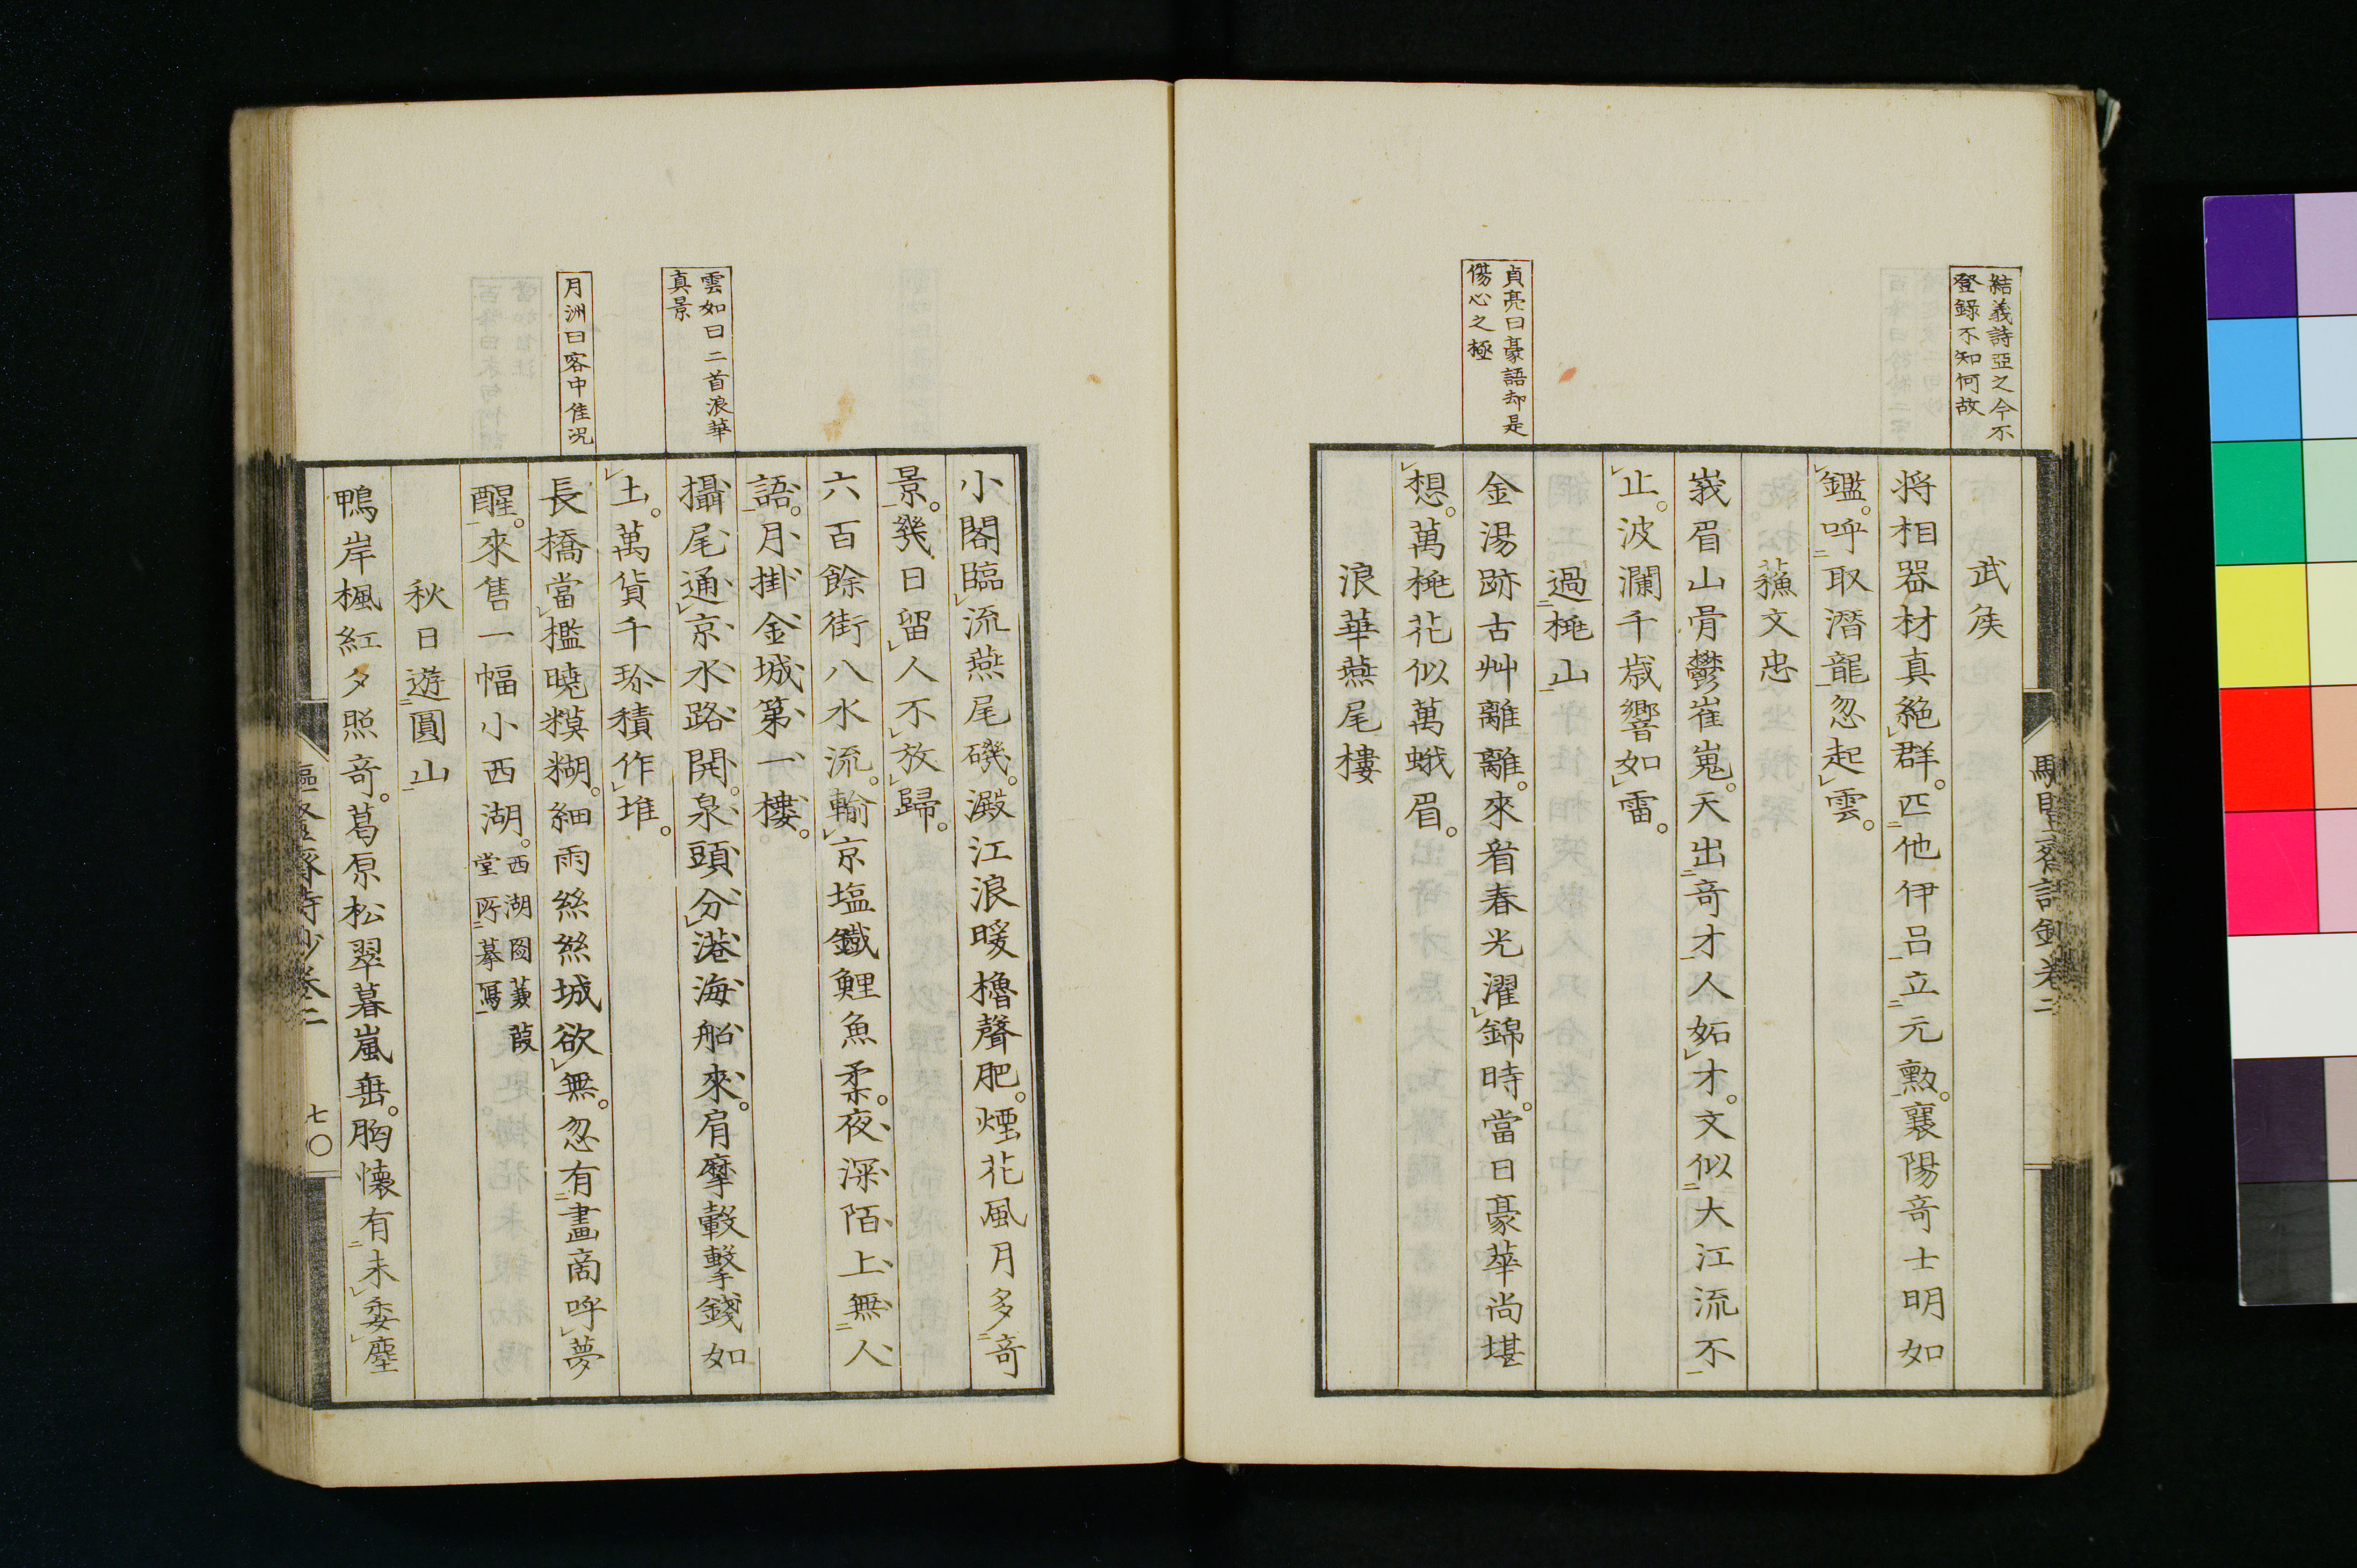 結義詩亞之今不
登錄不知何故
貞亮曰豪語却是
傷心之極
武矦
将相器材真絶群。匹他伊呂立元勲。襄陽奇士明如
鑑。呼取潛龍忽起雲。
蘓文忠
峩眉山骨鬱崔嵬。天出奇才人妬才。文似大江流不
止。波瀾千歳響如雷。
過桃山
金湯跡古艸離離。來看春光濯錦時。當日豪華尚堪
想。萬桃花似萬蛾眉。
浪華燕尾樓
雲如曰二首浪華
真景
月洲曰客中佳况
小閣臨流燕尾磯。澱江浪暖櫓聲肥。煙花風月多奇
景。幾日留人不放歸。
六百餘街八水流。輸京塩鐵鯉魚柔。夜深陌上無人
語。月掛金城第一樓。
攝尾通京水路開。泉頭分港海船來。肩摩轂擊錢如
土。萬貨千珎積作堆。
長橋當檻曉糢糊。細雨絲絲城欲無。忽有畫商呼夢
醒。來售一幅小西湖。西湖圖蒹葭
堂所摹寫
秋日遊圓山
鴨岸楓紅夕照奇。葛原松翠暮嵐垂。胸懐有未委塵
七〇